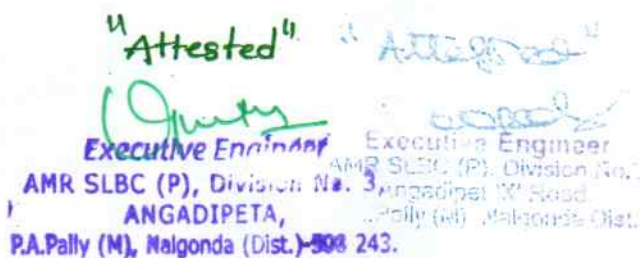 "Attested"
Executive Engineer
AMR SLBC (P), Division No. 3,
ANGADIPETA,
P.A.Pally (M), Nalgonda (Dist.)-508 243.
"Attested"
Executive Engineer
AMR SLBC (P), Division No.
Angadipet 'X' Road
Pally (M) Nalgonda Dist.